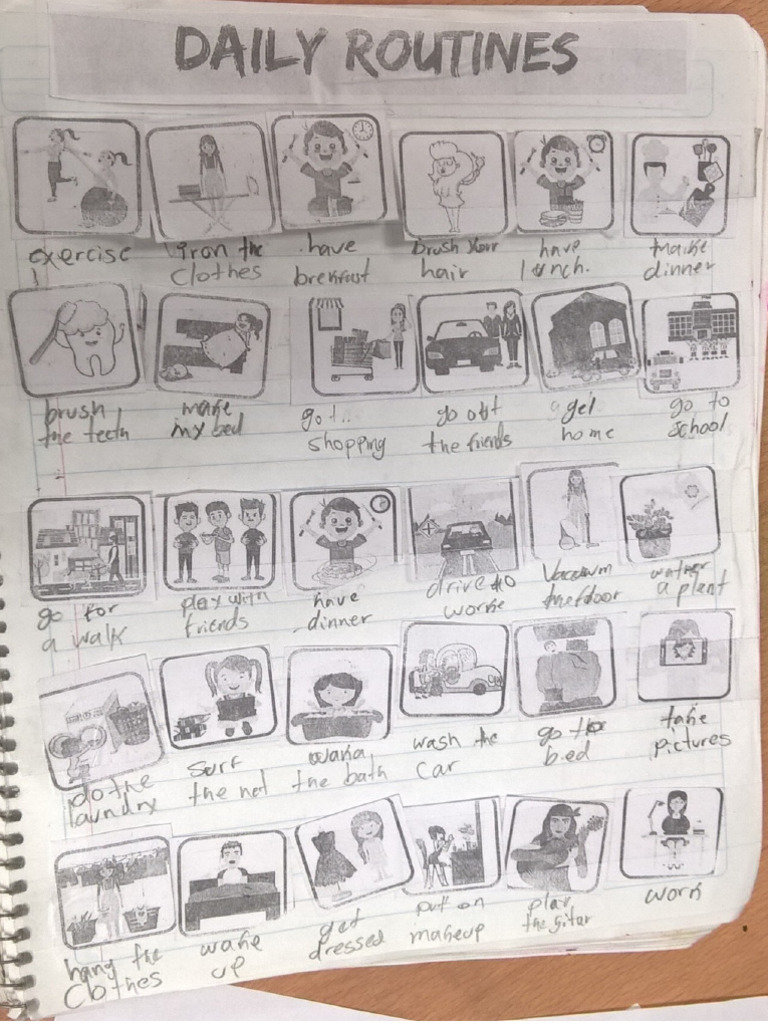 DAILY ROUTINES
exercise iron the have brush your have make
clothes brekfast hair lunch. dinner
brush make go t.. go out get go to
the teeth my bed shopping the friends home school
go for play with have drive to vacuum water
a walk friends dinner worke the floor a plant
do the surf the wash the go to take
laundry the net the bath car bed pictures
hang the wake get put on play work
clothes up dressed makeup the gitar